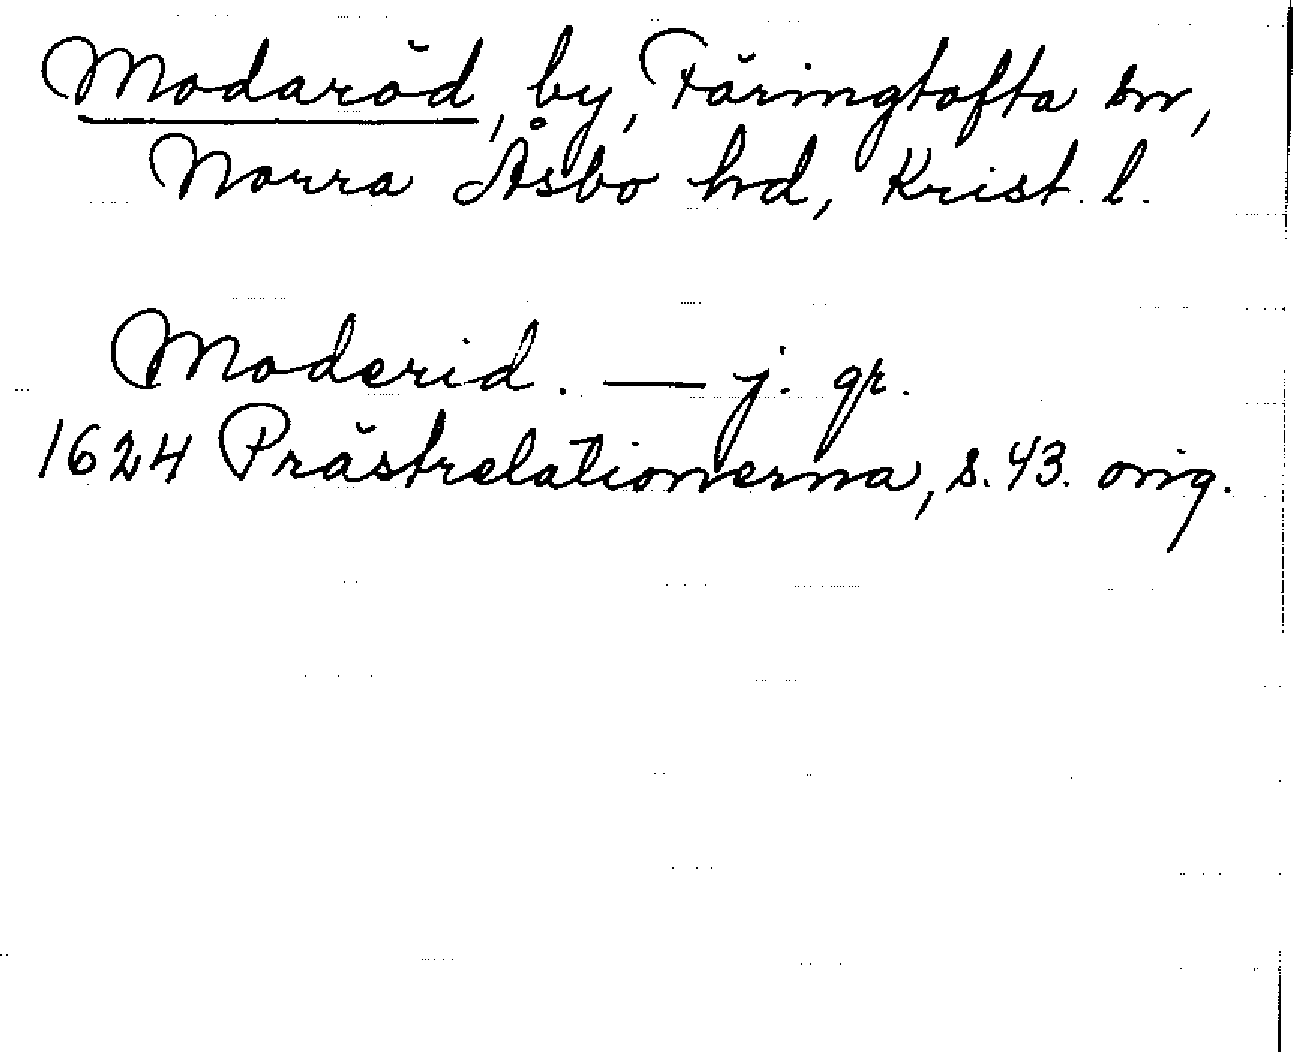 Modaröd, by, Färingtofta sn,
Norra Åsbo hd, Krist. l.
Moderid. — j. gr.
1624 Prästrelationerna, s. 43. orig.